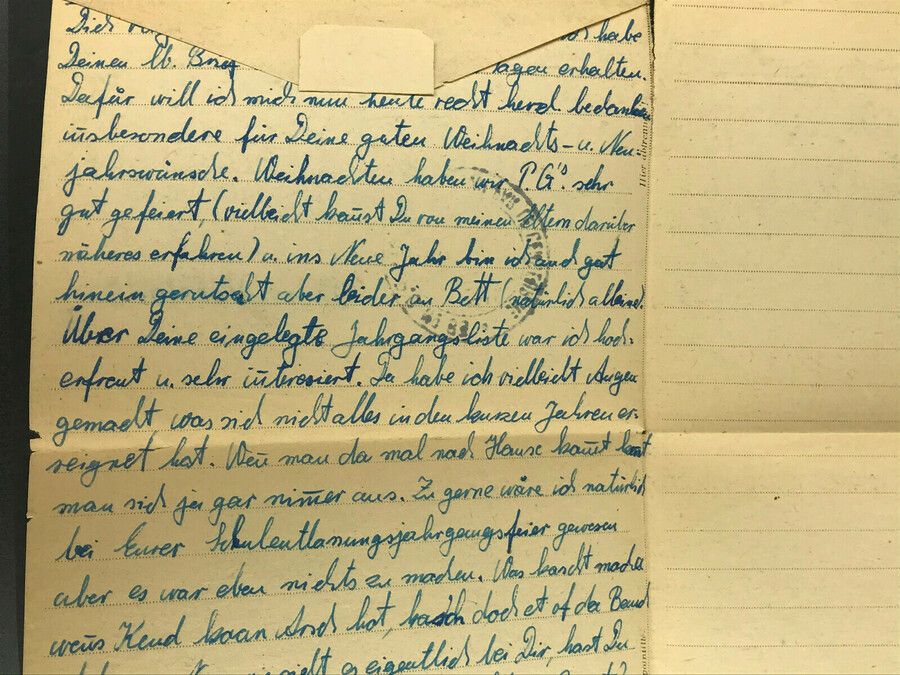 habe
Deinen lb. Brief erhalten.
Dafür will ich mich nun heute recht herzl bedanken
insbesondere für Deine guten Weihnachts- u. Neu-
jahrswünsche. Weihnachten haben wir PG's. sehr
gut gefeiert, (vielleicht kannst Du von meinen Eltern darüber
näheres erfahren) u. ins Neue Jahr bin ich auch gut
hinein gerutscht aber leider im Bett (natürlich alleine).
Über Deine eingelegte Jahrgangsliste war ich hoch-
erfreut u. sehr interessiert. Da habe ich vielleicht Augen
gemacht, was sich nicht alles in den kurzen Jahren er-
eignet hat. Wenn man da mal nach Hause kom̅t kennt
man sich ja gar nim̅er aus. Zu gerne wäre ich natürlich
bei Eurer Schulentlassungsjahrgangsfeier gewesen
aber es war eben nichts zu machen. Was kascht mache
wenns Kend koan Arsch hot, kasch doch et of da Bend
es eigentlich bei Dir, hast Du